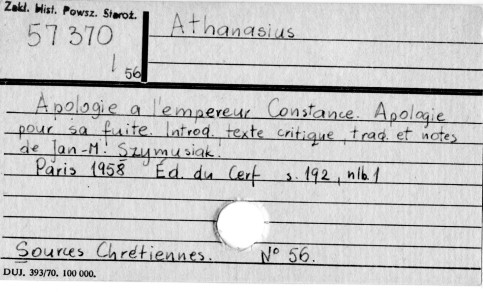 Zakł. Hist. Powsz. Staroż.
57 370
56
Athanasius
Apologie a l'empereur Constance. Apologie
pour sa fuite. Introd. texte critique, trad. et notes
de Jan-M. Szymusiak.
Paris 1958 Éd. du Cerf s. 192, nlb. 1
Sources Chrétiennes. Nº 56.
DUJ. 393/70. 100 000.